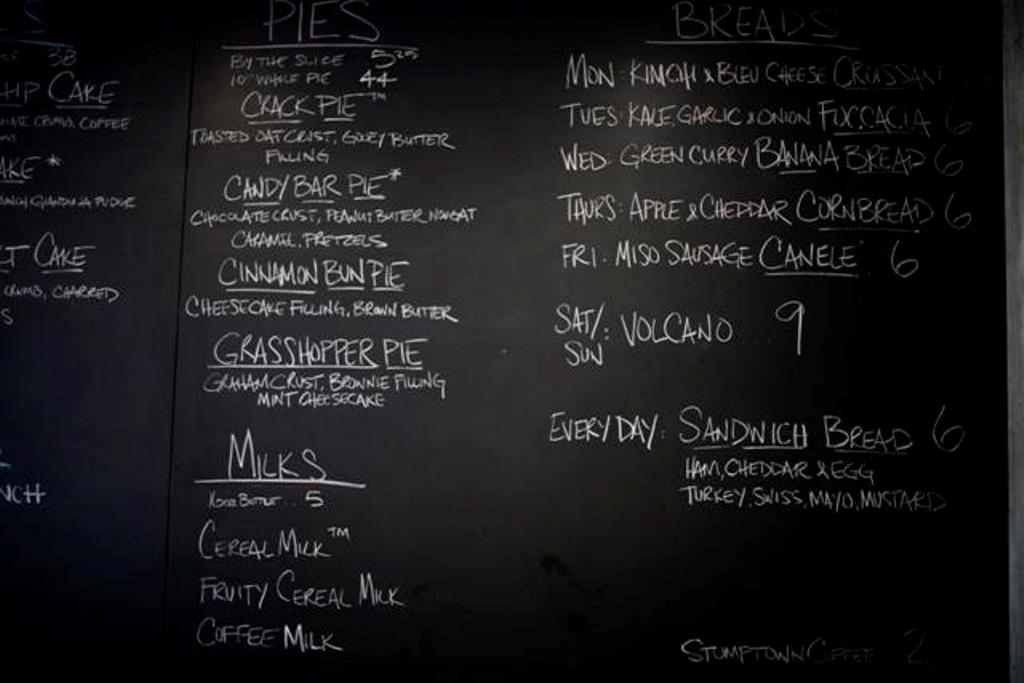 S
38
HIP CAKE
CRUMB, COFFEE
AKE*
FUDGE
T CAKE
CRUMB, CHARRED
S
NCH
PIES
BY THE SLICE 5.25
10" WHOLE PIE 44
CRACK PIE™
TOASTED OAT CRUST, GOOEY BUTTER
FILLING
CANDY BAR PIE*
CHOCOLATE CRUST, PEANUT BUTTER NOUGAT
CARAMEL, PRETZELS
CINNAMON BUN PIE
CHEESECAKE FILLING, BROWN BUTTER
GRASSHOPPER PIE
GRAHAM CRUST, BROWNIE FILLING
MINT CHEESECAKE
MILKS
BOTTLE .. 5
CEREAL MILK™
FRUITY CEREAL MILK
COFFEE MILK
BREADS
MON: KIMCHI & BLEU CHEESE CROISSANT
TUES: KALE, GARLIC & ONION FOCCACIA 6
WED: GREEN CURRY BANANA BREAD 6
THURS: APPLE & CHEDDAR CORNBREAD 6
FRI: MISO SAUSAGE CANELE 6
SAT/: VOLCANO ... 9
SUN
EVERYDAY: SANDWICH BREAD 6
HAM, CHEDDAR & EGG
TURKEY, SWISS, MAYO, MUSTARD
STUMPTOWN COFFEE 2